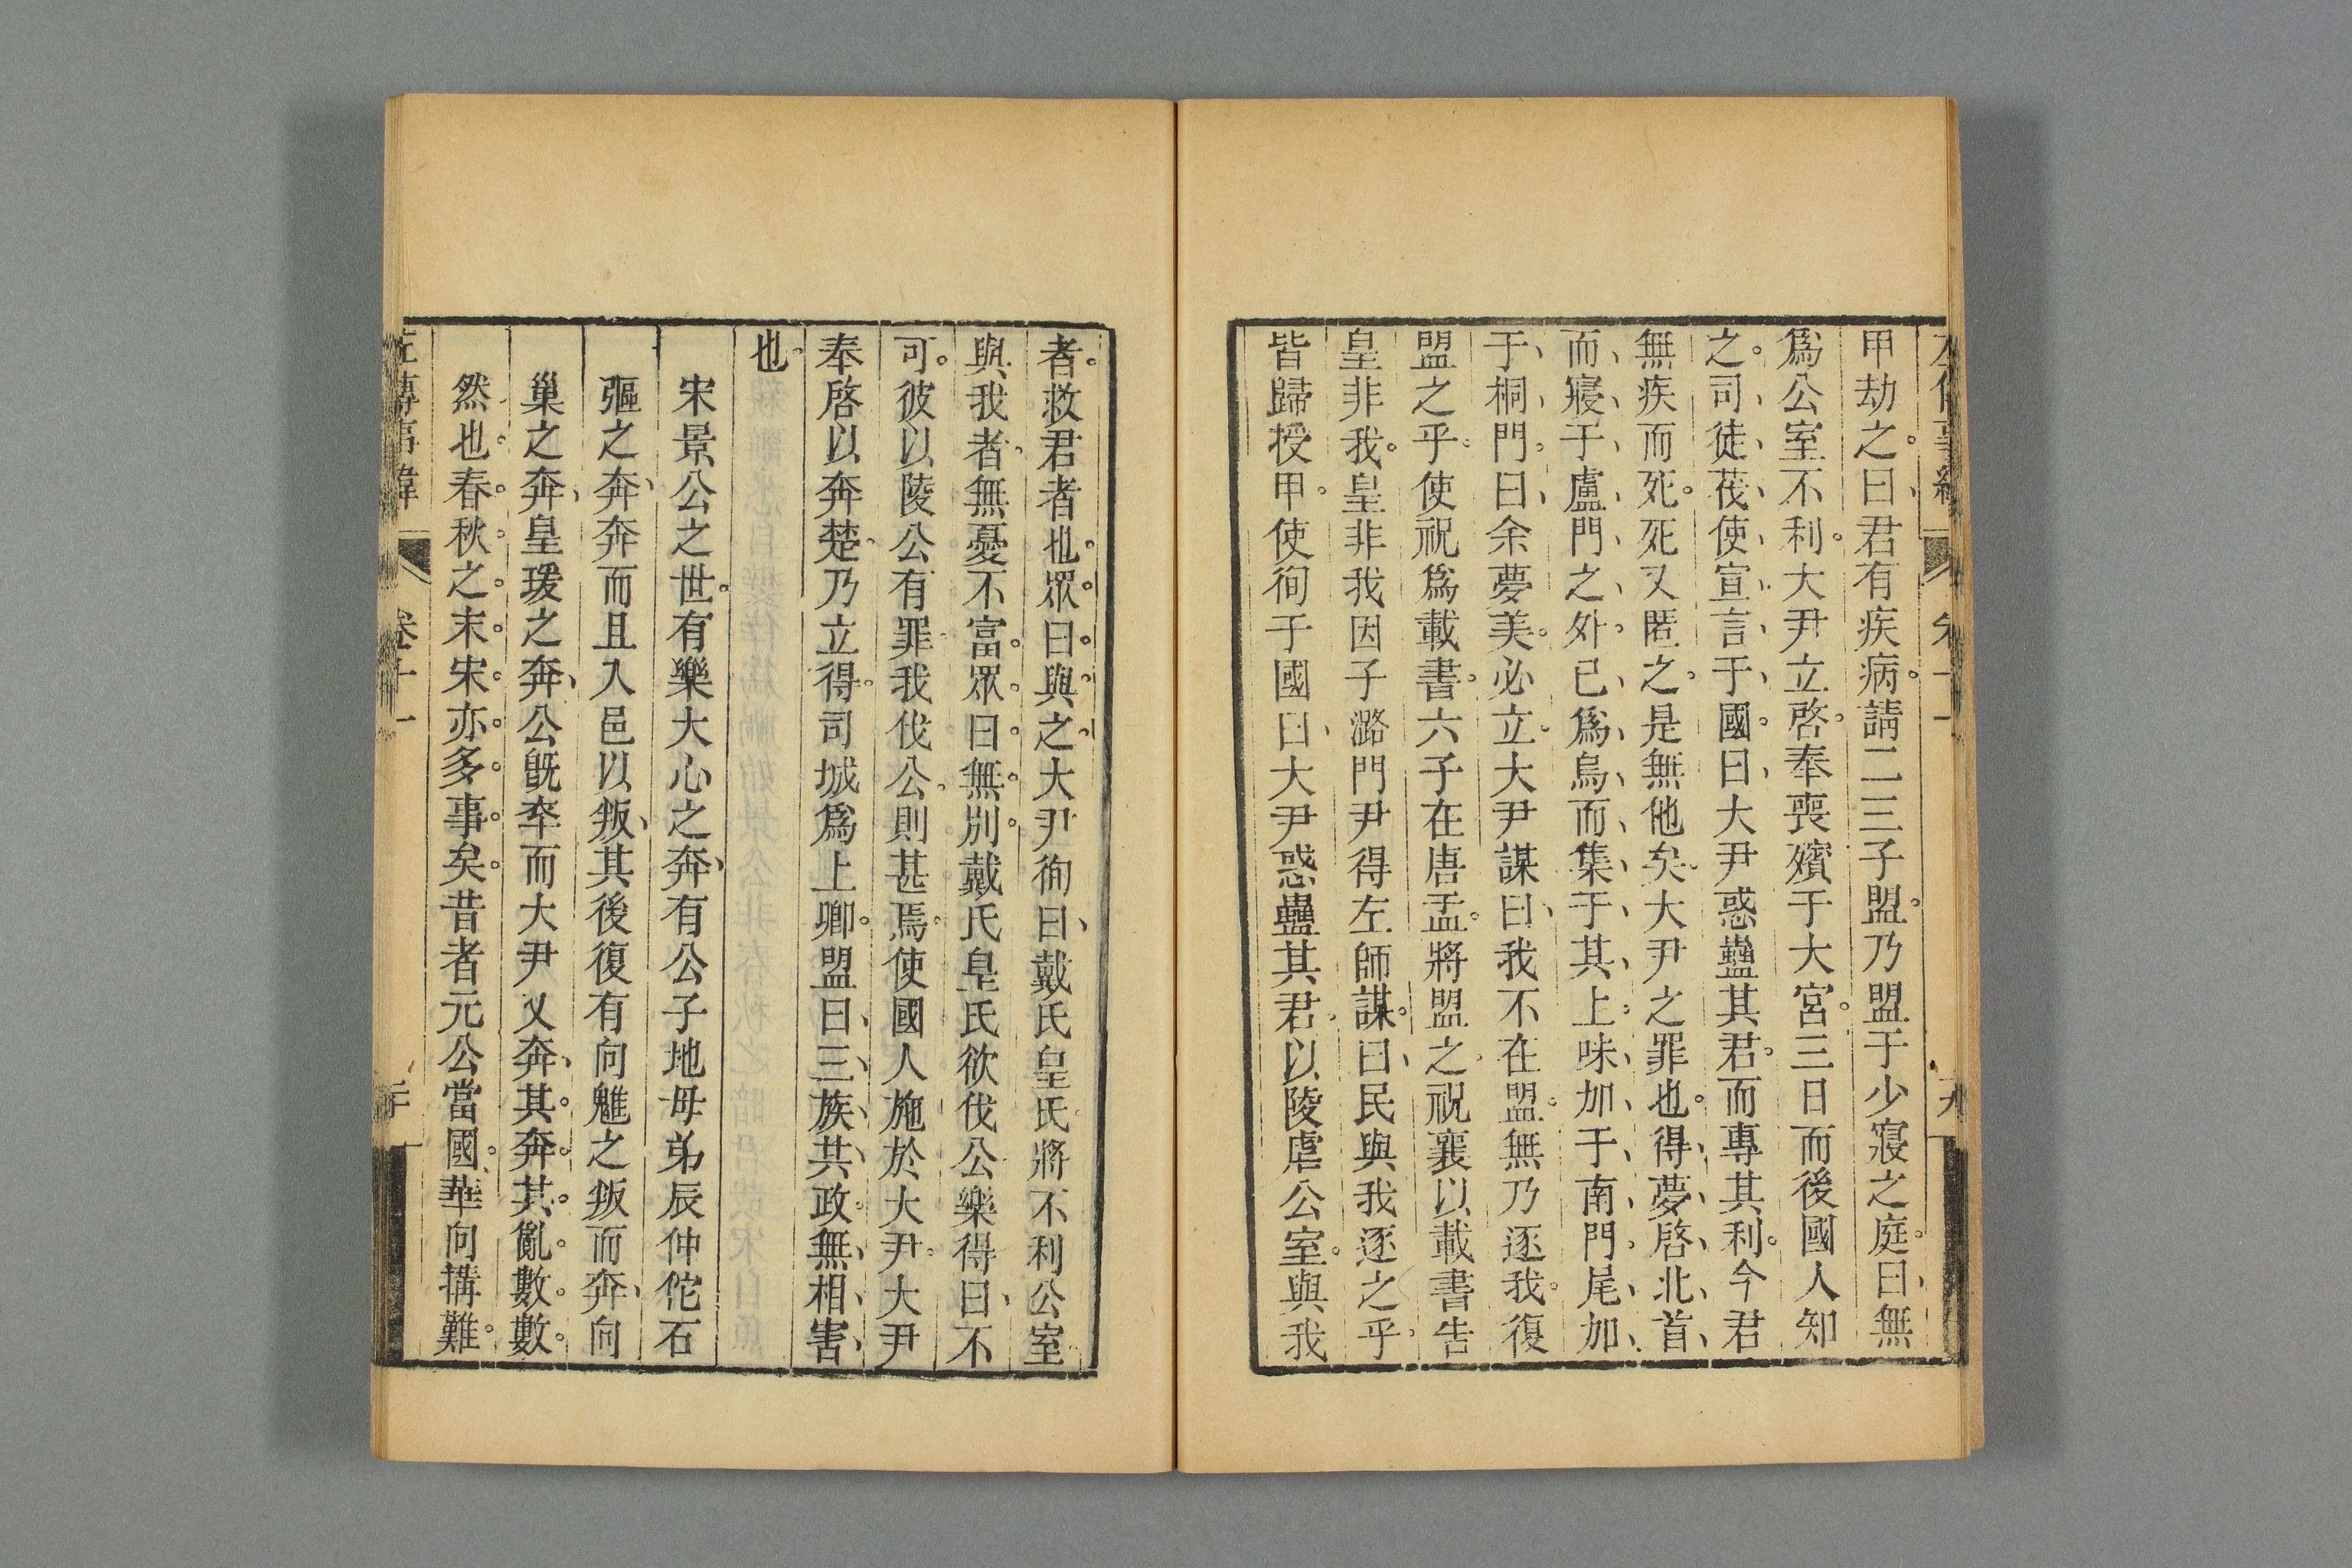 甲劫之曰君有疾病請二三子盟乃盟于少寢之庭曰無
爲公室不利大尹立啓奉喪殯于大宮三日而後國人知
之司徒茷使宣言于國曰大尹惑蠱其君而專其利今君
無疾而死死又匿之是無他矣大尹之罪也得夢啓北首
而寢于盧門之外已爲烏而集于其上咮加于南門尾加
于桐門曰余夢美必立大尹謀曰我不在盟無乃逐我復
盟之乎使祝爲載書六子在唐孟將盟之祝襄以載書告
皇非我皇非我因子潞門尹得左師謀曰民與我逐之乎
皆歸授甲使徇于國曰大尹惑蠱其君以陵虐公室與我
者救君者也眾曰與之大尹徇曰戴氏皇氏將不利公室
與我者無憂不富眾曰無別戴氏皇氏欲伐公樂得曰不
可彼以陵公有罪我伐公則甚焉使國人施於大尹大尹
奉啓以奔楚乃立得司城爲上卿盟曰三族共政無相害
也
宋景公之世有樂大心之奔有公子地母弟辰仲佗石
彄之奔奔而且入邑以叛其後復有向魋之叛而奔向
巢之奔皇瑗之奔公旣卒而大尹又奔其奔其亂數數
然也春秋之末宋亦多事矣昔者元公當國華向搆難
左傳事緯 卷十一